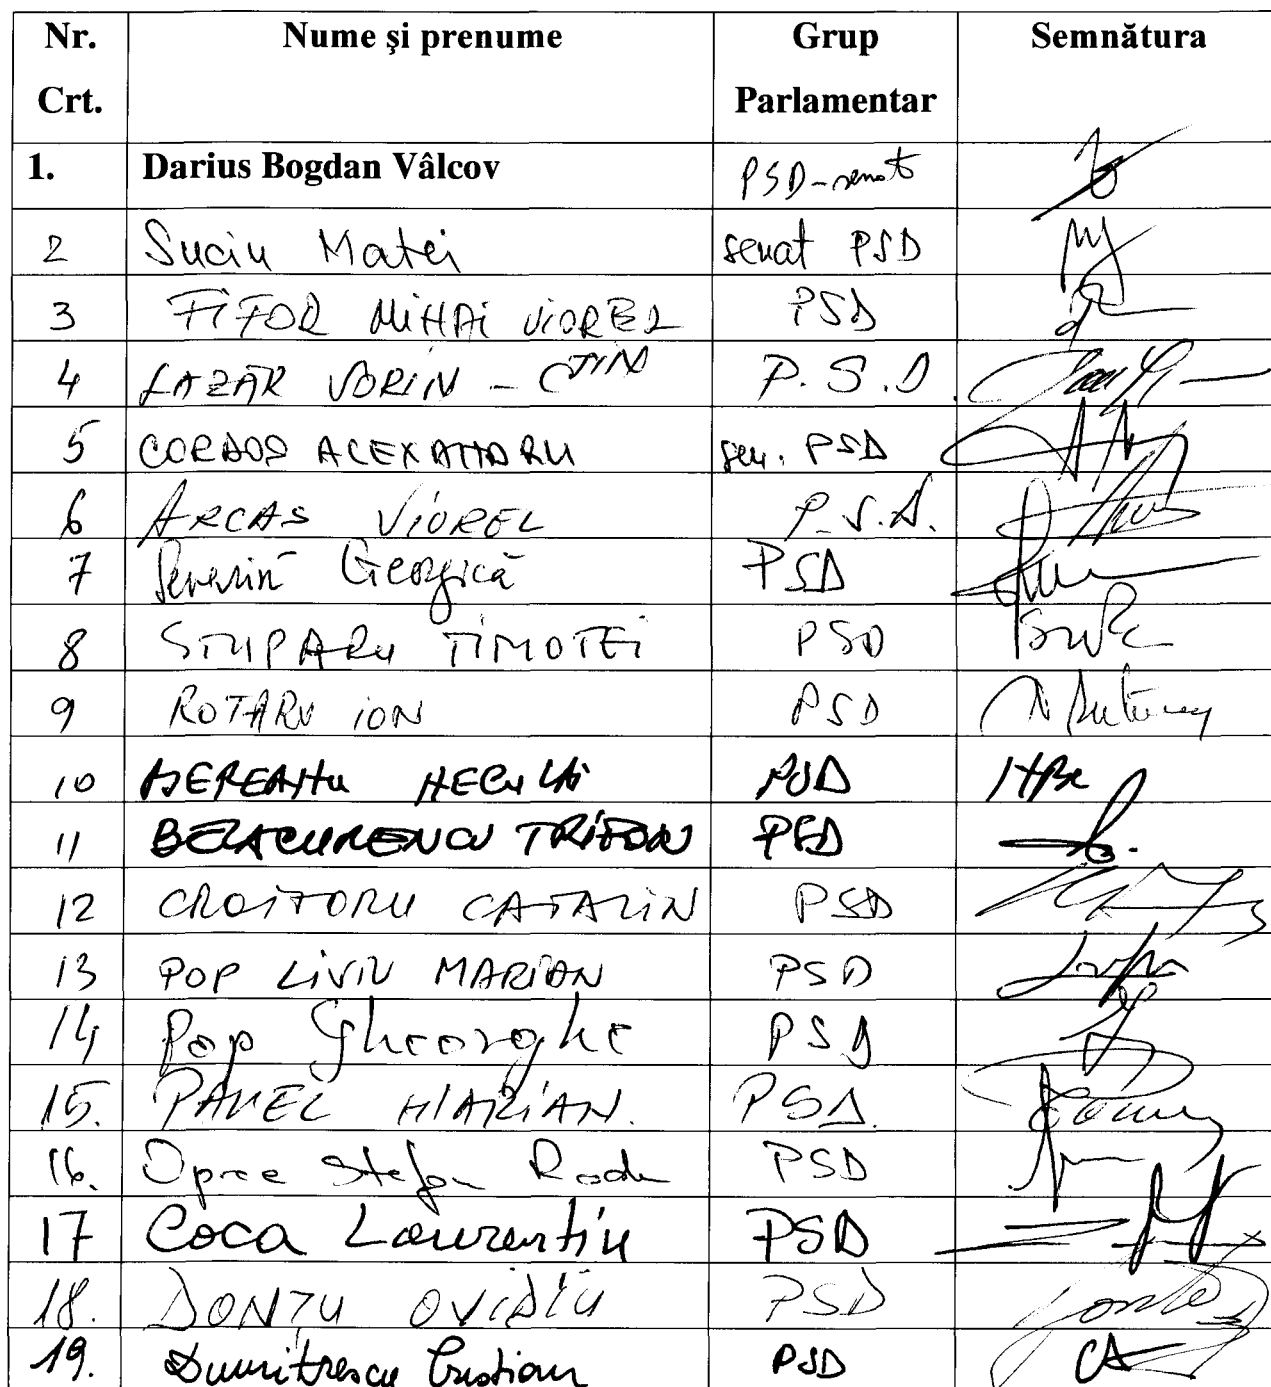 Nr. Crt. Nume şi prenume Grup Parlamentar Semnătura
1. Darius Bogdan Vâlcov PSD-senat
2 Suciu Matei senat PSD
3 FIFOR MIHAI VIOREL PSD
4 LAZĂR SORIN - CTIN P.S.D.
5 CORDOȘ ALEXANDRU sen. PSD
6 ARCAȘ VIOREL P.S.D.
7 Severin Georgică PSD
8 STUPARU TIMOTEI PSD
9 ROTARU ION PSD
10 PSD
11 BELACURENCU TRIFON PSD
12 CROITORU CATALIN PSD
13 POP LIVIU MARIAN PSD
14 Pop Gheorghe PSD
15. PAVEL MARIAN. PSD
16. Oprea Stefan Radu PSD
17 Coca Laurentiu PSD
18. DONȚU OVIDIU PSD
19. Dumitrescu Cristian PSD